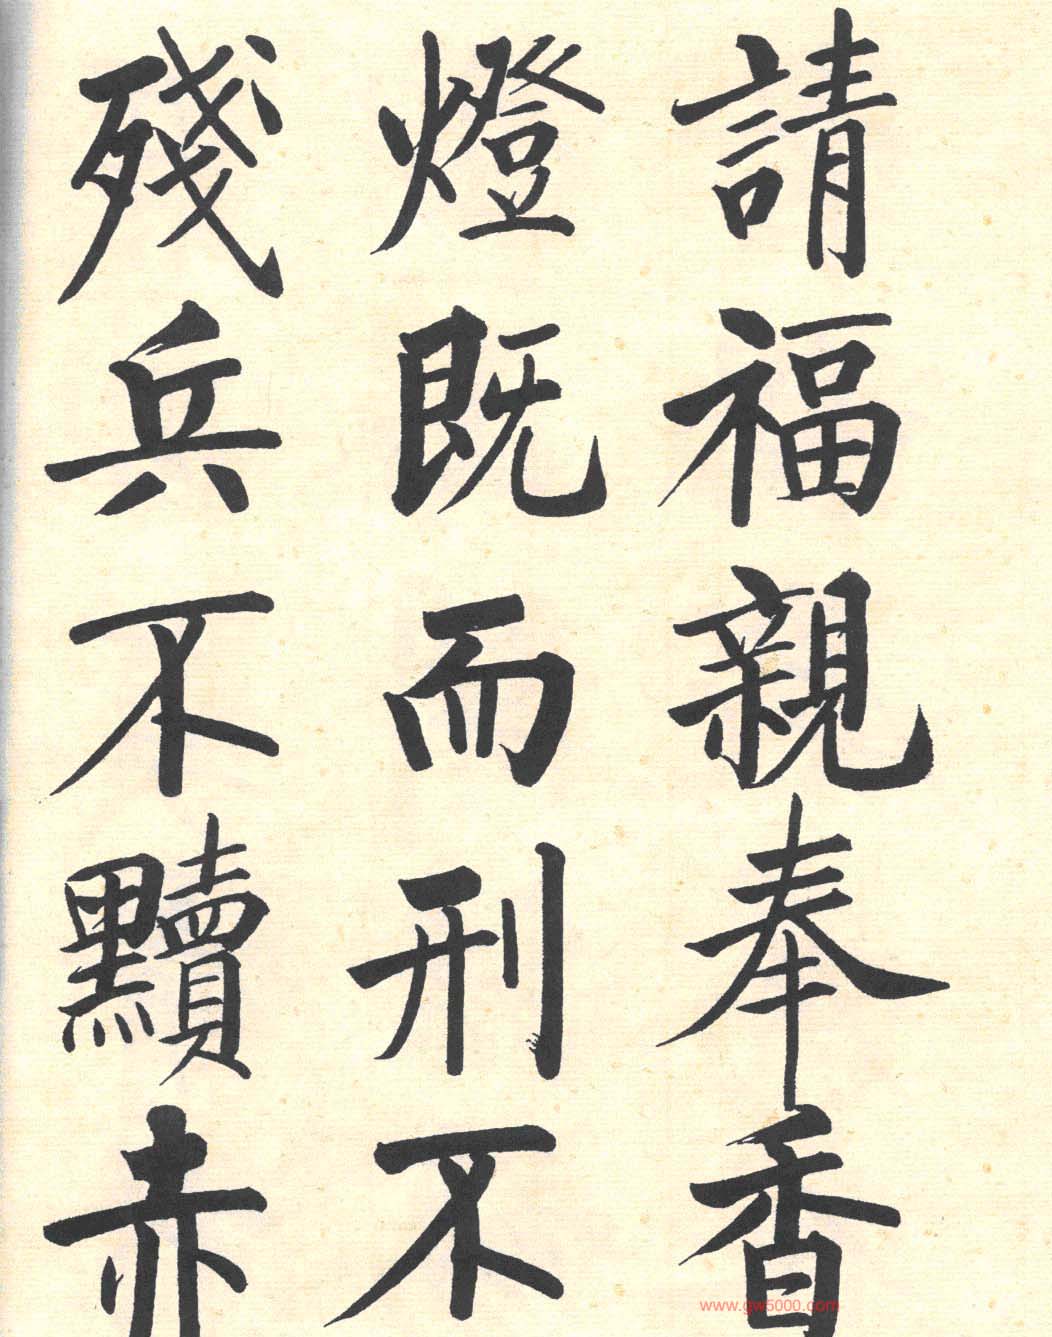 請福親奉香
燈既而刑不
殘兵不黷赤
www.gw5000.com